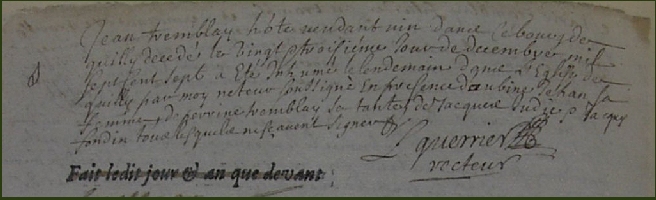 Jean tremblay hôte vendant vin dans le bourg de
quilly decedé le vingt troisième jour de decembre mil
sept sent sept a été Inhumé le lendemain dans l'Eglise de
quilly par moy recteur soussigné En presence daubine Jehan sa
femme & de perrine tremblay sa tante & de Jacques Judic & Jacques
fondin tous lesquels ne scavent signer
guerrier
recteur
Fait ledit jour & an que devant